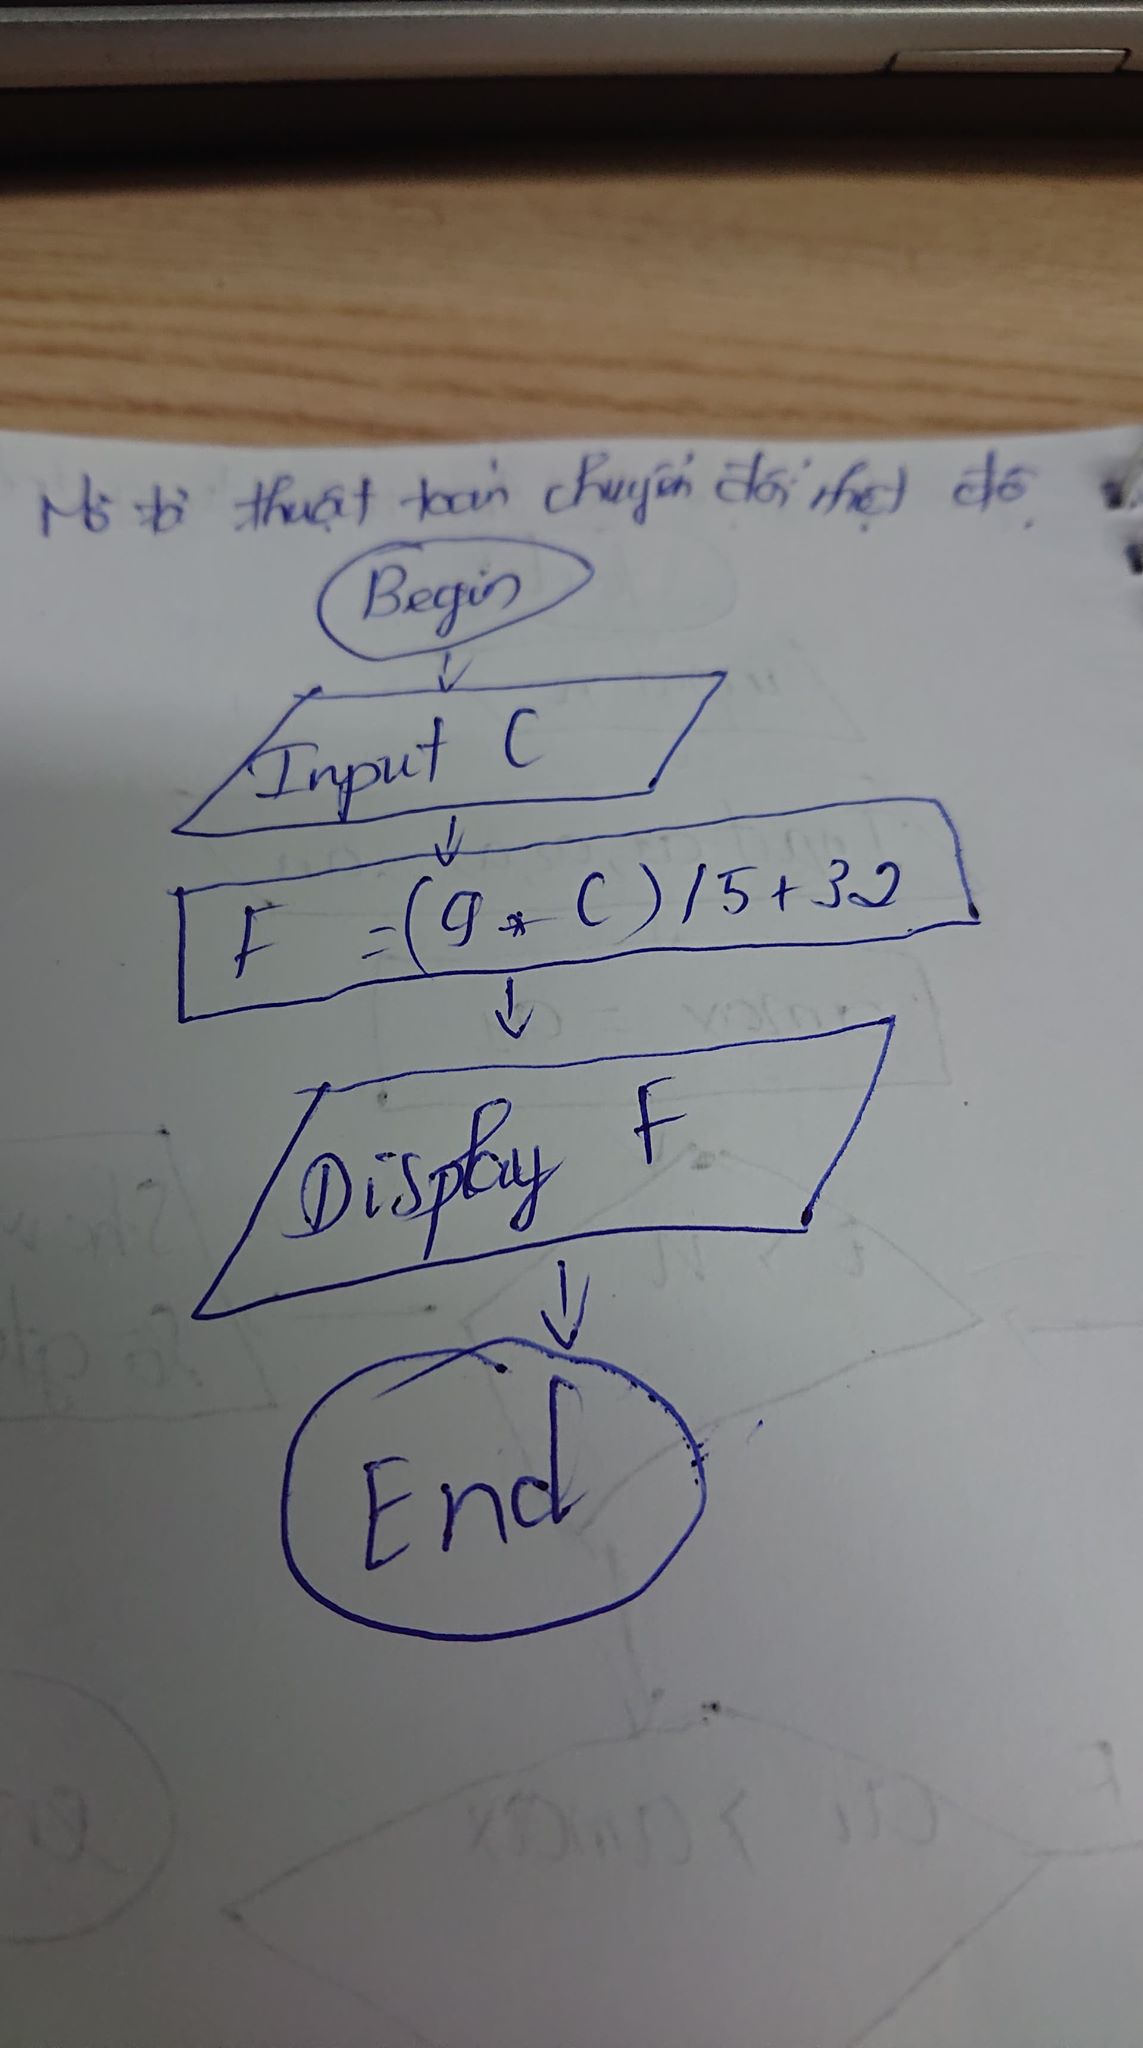 Mô tả thuật toán chuyển đổi nhiệt độ
Begin
Input C
F = (9 * C) / 5 + 32
Display F
End